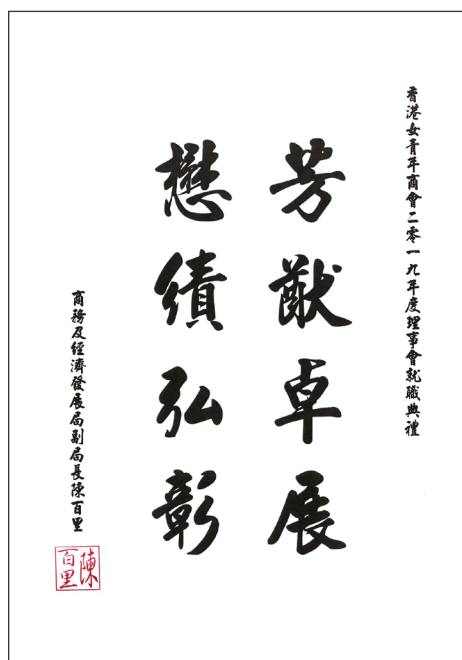 香港女青年商會二零一九年度理事會就職典禮
芳猷卓展
懋績弘彰
商務及經濟發展局副局長陳百里
陳百里